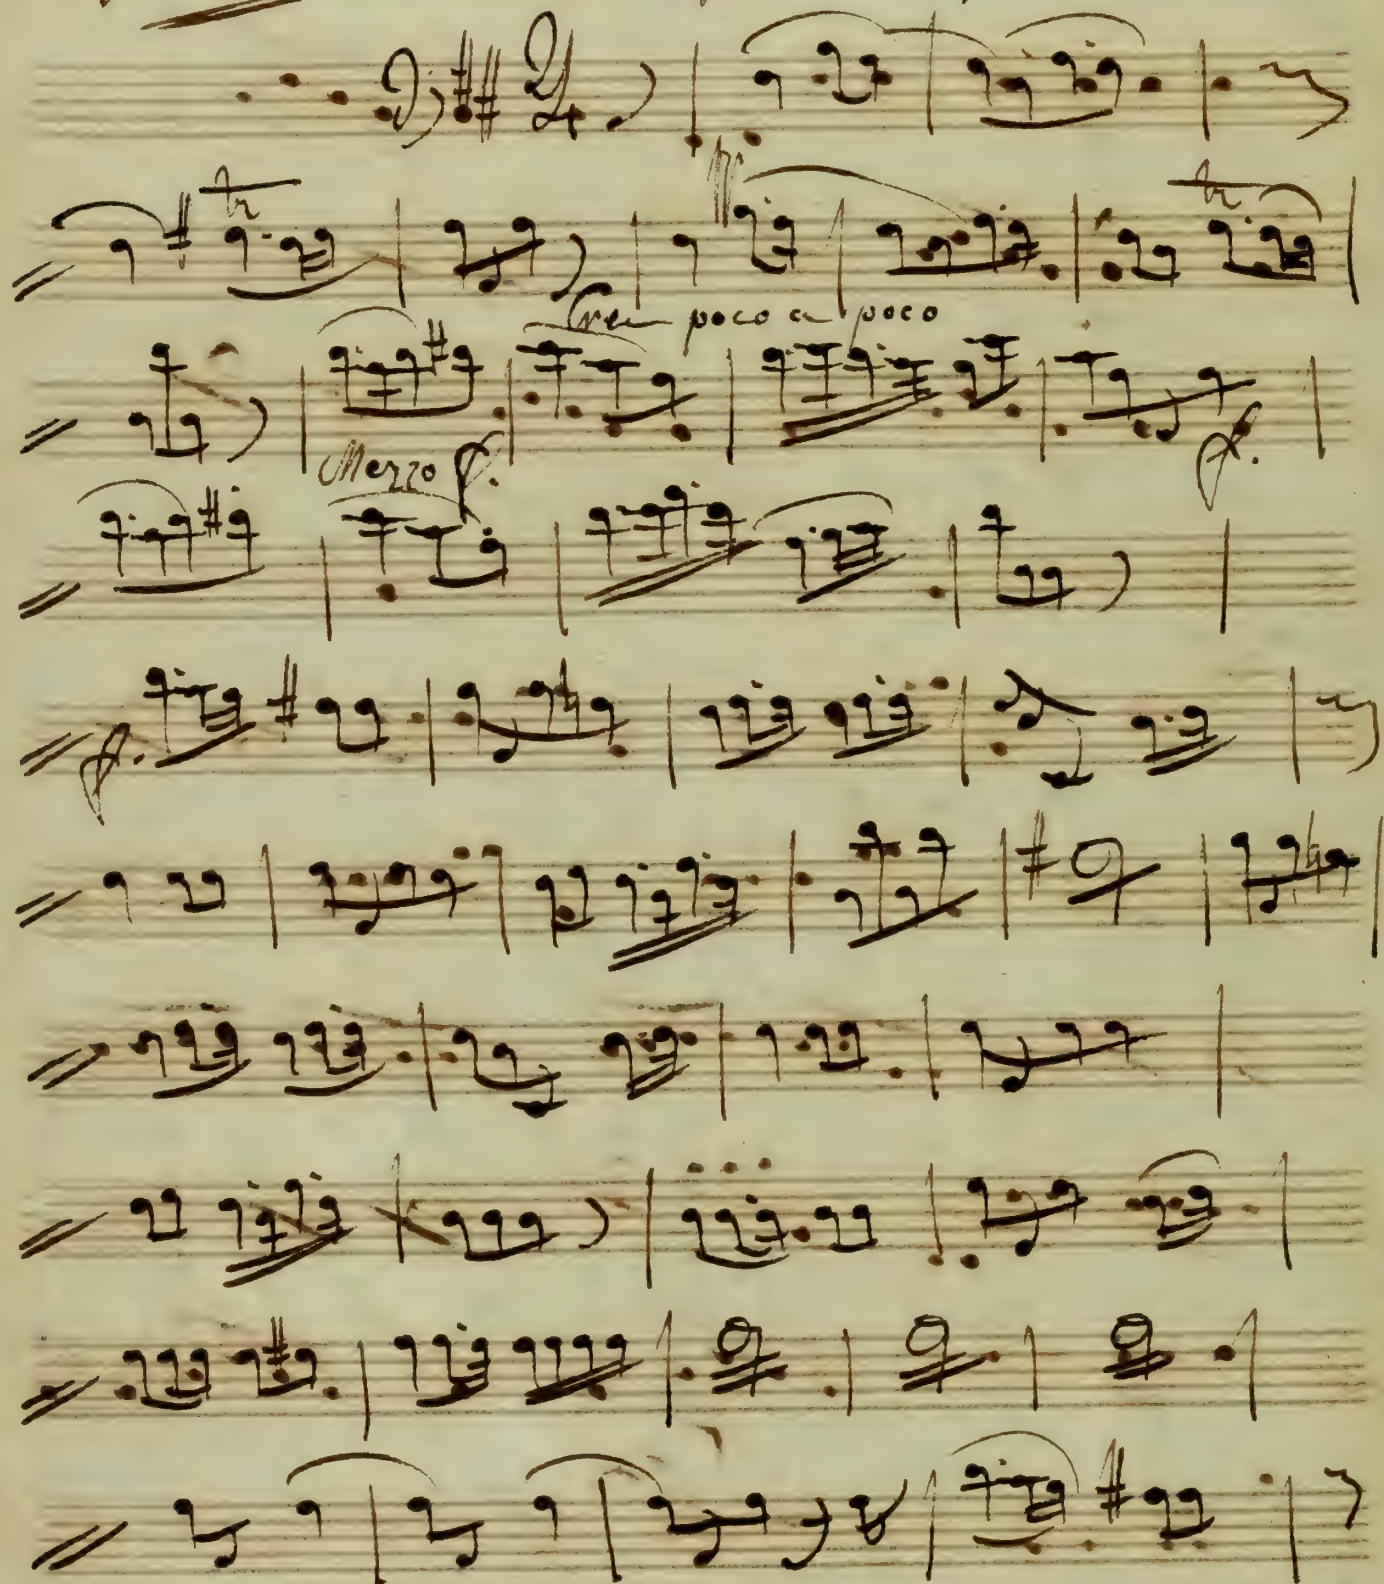 2/4
tr tr
Cres poco a poco
Mezzo f. f.
f.